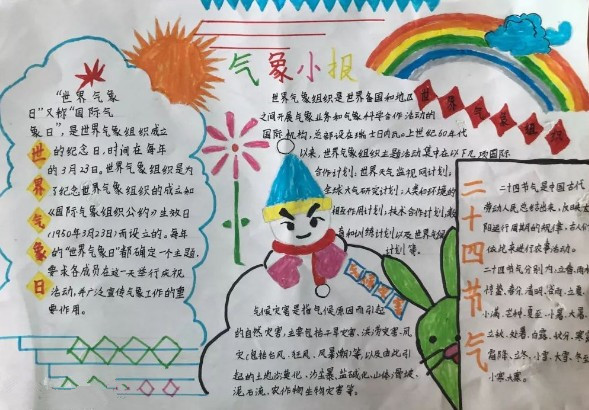 气象小报
“世界气象
日”又称“国际气
象日”，是世界气象组织成立
的纪念日，时间在每年
的3月23日。世界气象组织是为
了纪念世界气象组织的成立和
《国际气象组织公约》生效日
（1950年3月23日）而设立的。每年
的“世界气象日”都确定一个主题，
要求各成员在这一天举行庆祝
活动，并广泛宣传气象工作的重
要作用。
世界气象日
世界气象组织是世界各国和地区
之间开展气象业务和气象科学合作活动的
国际机构，总部设在瑞士日内瓦。上世纪60年代
以来，世界气象组织主题活动集中在以下几项国际
合作计划，世界天气监视网计划，
全球大气研究计划，人类和环境的
相互作用计划，技术合作计划，教
育和训练计划以及世界
计划等。
世界气象组织
气候灾害
气候灾害是指气候原因而引起
的自然灾害，主要包括干旱灾害、洪涝灾害、风
灾（包括台风、狂风、风暴潮）等，以及由此引
起的土地沙漠化、沙尘暴、盐碱化、山体滑坡、
泥石流、农作物生物灾害等。
二十四节气
二十四节气是中国古代
劳动人民总结出来，反映太
阳运行周期的规律，古人们
依此来进行农事活动。
二十四节气分别为：立春、雨水
惊蛰、春分、清明、谷雨、立夏、
小满、芒种、夏至、小暑、大暑、
立秋、处暑、白露、秋分、寒露
霜降、立冬、小雪、大雪、冬至
小寒、大寒。